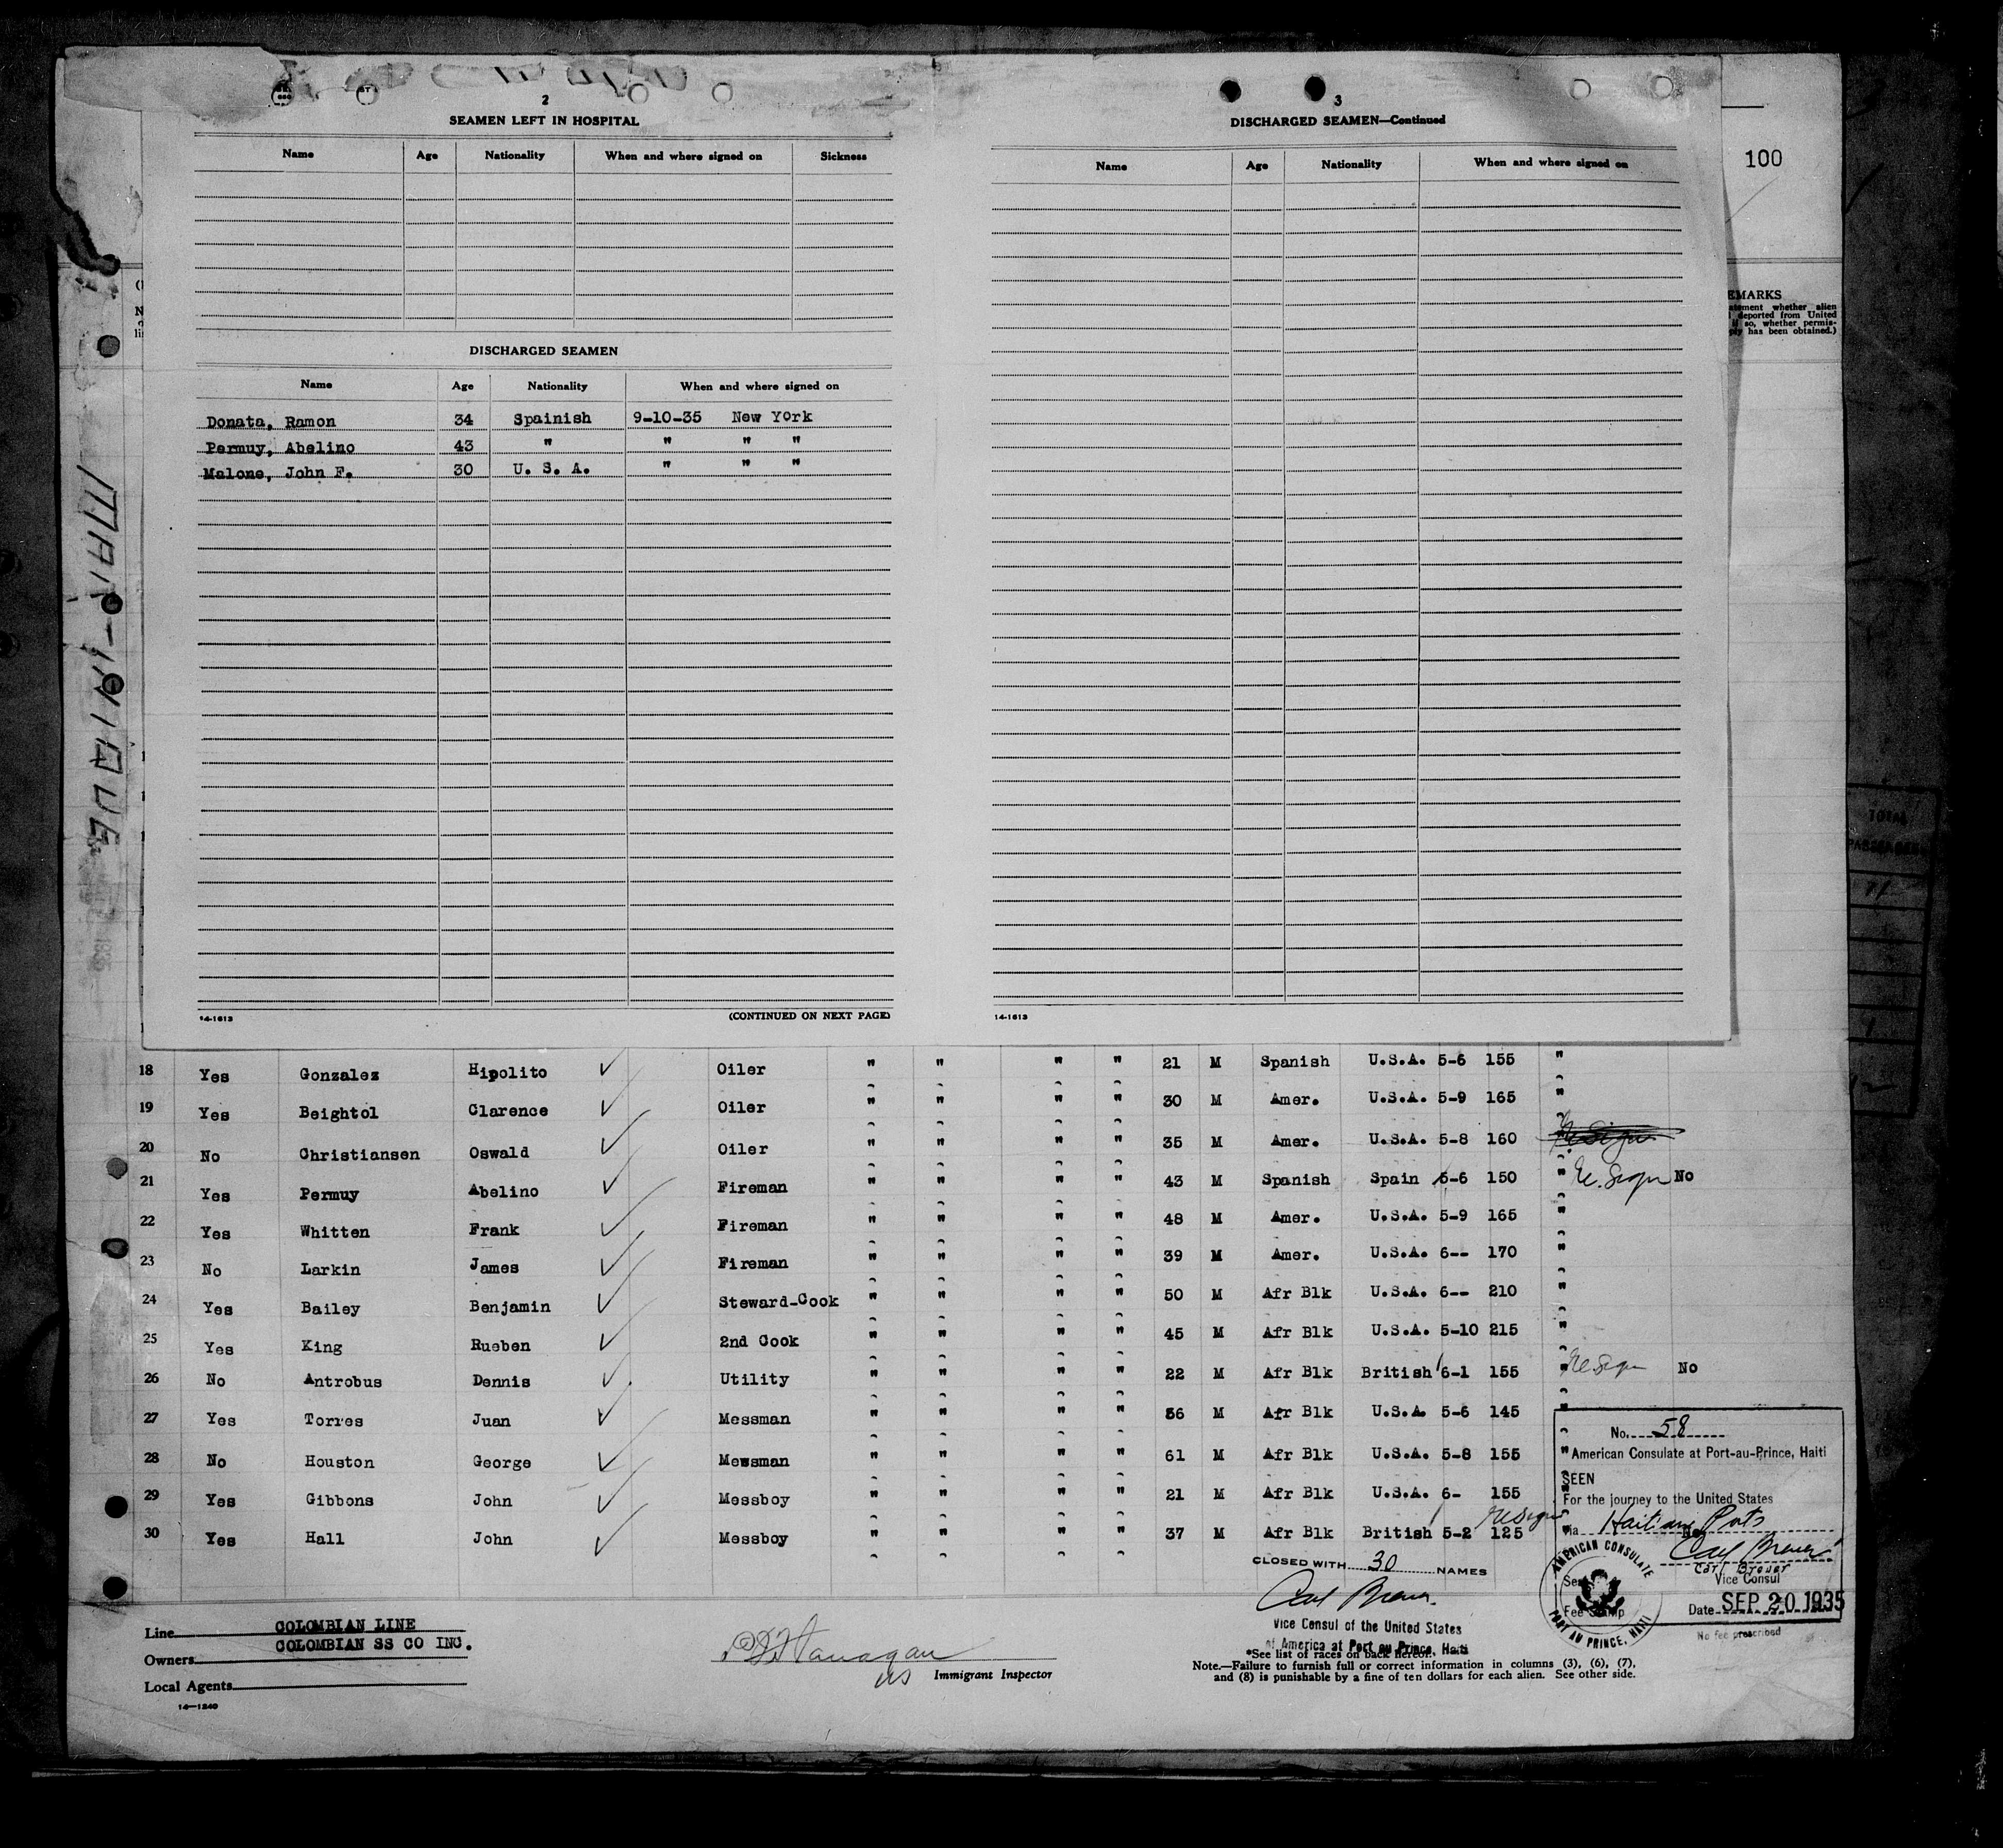 2
SEAMEN LEFT IN HOSPITAL
Name Age Nationality When and where signed on Sickness
DISCHARGED SEAMEN
Name Age Nationality When and where signed on
Donata, Ramon 34 Spainish 9-10-35 New York
Permuy, Abelino 43 " " " "
Malone, John F. 30 U. S. A. " " "
14-1613 (CONTINUED ON NEXT PAGE)
3
DISCHARGED SEAMEN—Continued
Name Age Nationality When and where signed on
14-1613
100
EMARKS
atement whether alien
deported from United
if so, whether permis-
ply has been obtained.)
MARTINIQUE
TOTAL
PASSENGERS
18 Yes Gonzalez Hipolito ✓ Oiler " " " " 21 M Spanish U.S.A. 5-6 155 "
19 Yes Beightol Clarence ✓ Oiler " " " " 30 M Amer. U.S.A. 5-9 165 "
20 No Christiansen Oswald ✓ Oiler " " " " 35 M Amer. U.S.A. 5-8 160
21 Yes Permuy Abelino ✓ Fireman " " " " 43 M Spanish Spain 5-6 150 " No
22 Yes Whitten Frank ✓ Fireman " " " " 48 M Amer. U.S.A. 5-9 165 "
23 No Larkin James ✓ Fireman " " " " 39 M Amer. U.S.A. 6-- 170 "
24 Yes Bailey Benjamin ✓ Steward-Cook " " " " 50 M Afr Blk U.S.A. 6-- 210 "
25 Yes King Rueben ✓ 2nd Cook " " " " 45 M Afr Blk U.S.A. 5-10 215 "
26 No Antrobus Dennis ✓ Utility " " " " 22 M Afr Blk British 6-1 155 " No
27 Yes Torres Juan ✓ Messman " " " " 56 M Afr Blk U.S.A 5-6 145 "
28 No Houston George ✓ Messman " " " " 61 M Afr Blk U.S.A. 5-8 155 "
29 Yes Gibbons John ✓ Messboy " " " " 21 M Afr Blk U.S.A. 6- 155 "
30 Yes Hall John ✓ Messboy " " " " 37 M Afr Blk British 5-2 125 " No
No. 58
American Consulate at Port-au-Prince, Haiti
SEEN
For the journey to the United States
via Haitian Ports
Carl Breuer
Carl Breuer
Vice Consul
Seal
Fee Stamp
Date SEP 20 1935
No fee prescribed
AMERICAN CONSULATE
PORT AU PRINCE, HAITI
CLOSED WITH 30 NAMES
Carl Breuer
Vice Consul of the United States
of America at Port au Prince, Haiti
*See list of races on back hereof.
Note.—Failure to furnish full or correct information in columns (3), (6), (7),
and (8) is punishable by a fine of ten dollars for each alien. See other side.
Line COLOMBIAN LINE
Owners COLOMBIAN SS CO INC.
Local Agents
14-1240
Immigrant Inspector